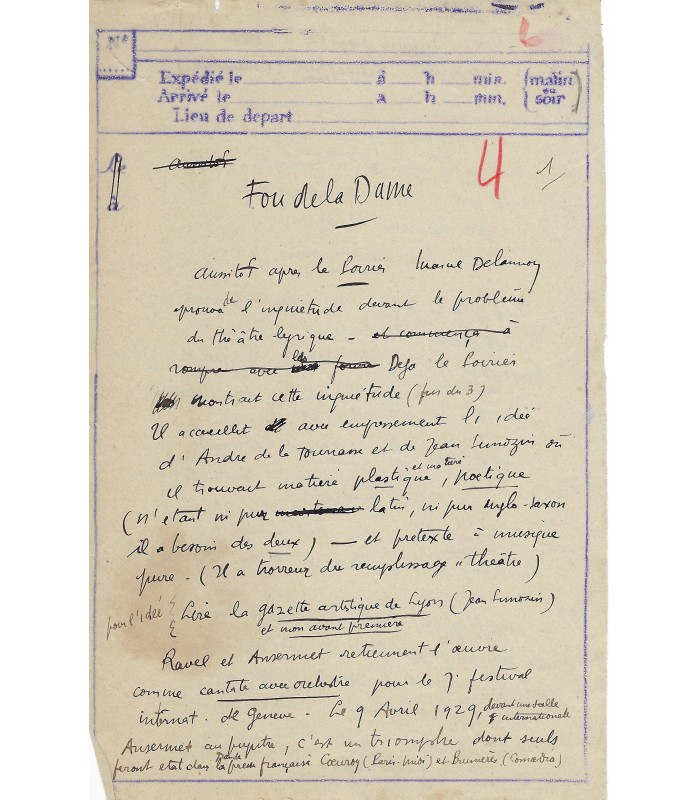 Nº
Expédié le à h min. (matin
ou
Arrivé le à h min. soir)
Lieu de départ
4
1/
aussitot
Fou de la Dame
aussitot apres le Poirier Marcel Delannoy
eprouva de l'inquietude devant le problème
du théâtre lyrique - et commença à
rompre avec les forme Deja le Poirier
montrait cette inquiétude (fin du 3)
Il accueillit avec empressement l'idée
d'Andre de la Tourrasse et de Jean Limozin où
il trouvait matière plastique, et matière poetique
(n'etant ni pur latin, ni pur anglo-saxon
il a besoin des deux) — et pretexte à musique
pure - (Il a horreur du remplissage "théâtre)
pour l'idée Lire la gazette artistique de Lyon (Jean Limozin)
et mon avant première
Ravel et Ansermet retiennent l'œuvre
comme cantate avec orchestre pour le 7e festival
internat. de Geneve - Le 9 Avril 1929, devant une salle
internationale
Ansermet au pupitre, c'est un triomphe dont seuls
feront etat dans la presse française Cœuroy (Paris-Midi) et Brunières (Comœdia)